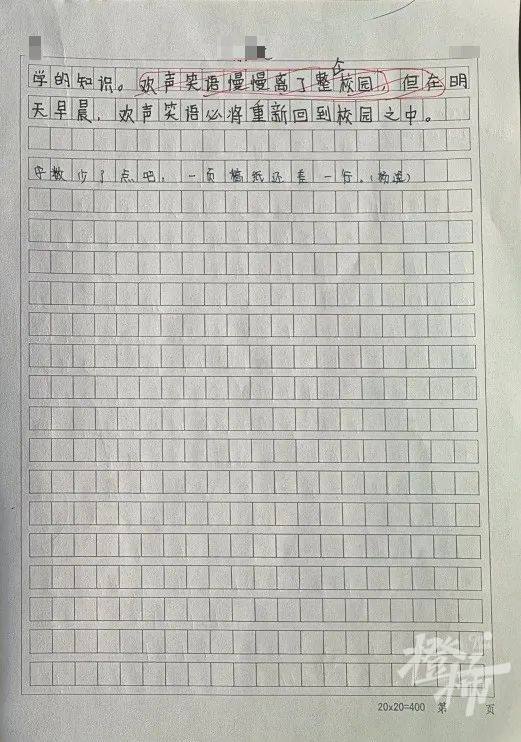 学的知识。欢声笑语慢慢离了整个校园，但在明
天早晨，欢声笑语必将重新回到校园之中。
字数少了点吧，一页稿纸还差一行。
20x20=400 第 页
橙柿